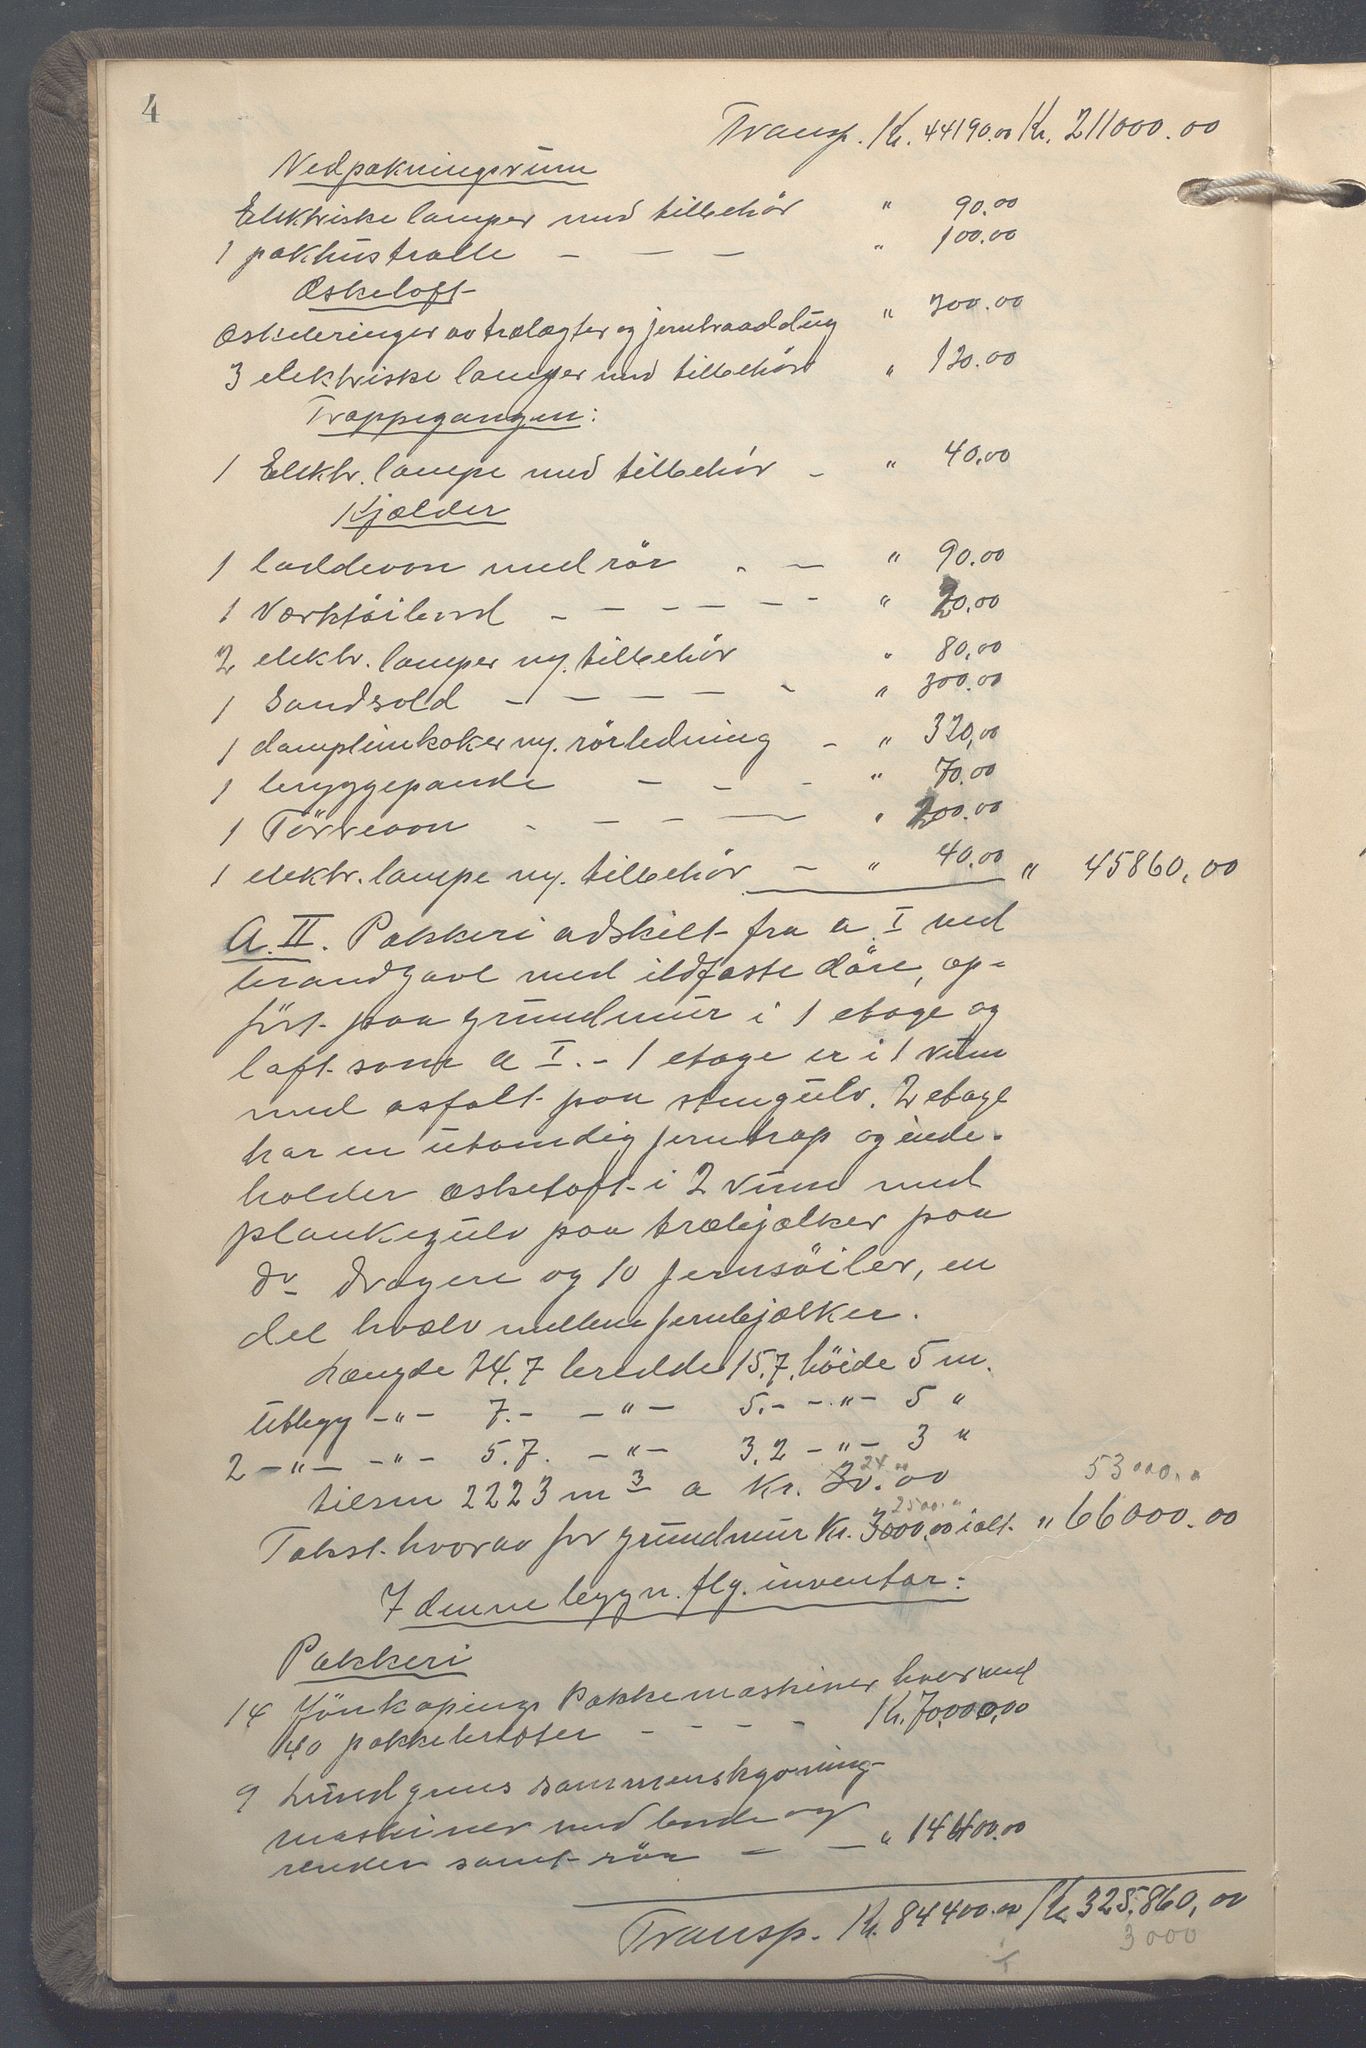 4
Transp. Kr. 44190.00 Kr. 211000.00
Nedpakningsrum
Elektriske lamper med tilbehör " 90.00
1 pakhustralle — — — " 100.00
Æskeloft
Æskebringer av trælægter og jerntraaddug " 300.00
3 elektriske lamper med tilbehör " 120.00
Trappegangen:
1 Elektr. lampe med tilbehör — " 40.00
Kjælder
1 loddeovn med rör - — " 90.00
1 Værktöibord — — — — — - " 20.00
2 elektr. lamper m. tilbehör " 80.00
1 Sandsold — — — — - " 300.00
1 damplimkoker m. rörledning — " 320,00
1 bryggepande — — - " 70.00
1 Törreovn - — — — " 200.00
1 elektr. lampe m. tilbehör — " 40.00 " 45860,00
A. II. Pakkeri adskilt fra a I ved
brandgavl med ildfaste döre, op-
fört paa grundmur i 1 etage og
loft som a I. - 1 etage er i 1 rum
med asfalt paa stengulv. 2 etage
har en utvendig jerntrap og inde-
holder æskeloft i 2 rum med
plankegulv paa træbjælker paa
do dragere og 10 jernsöiler, en
del hvælv mellem jernbjælker.
Længde 24.7 bredde 15.7, höide 5 m.
Utbygg -"- 7.- -"- 5.- -"- 5 "
2 -"- -"- 5.7. -"- 3,2 -"- 3 "
24 00
tilsm 2223 m3 a Kr. 30.00 53000.00
2500.00
Takst hvorav for grundmur Kr. 3000,00 ialt " 66000.00
I denne bygn. flg. inventar:
Pakkeri
14 Jönkopings Pakkemaskiner hver med
40 pakkebrætter — - - - Kr. 70,000,00
9 Lundgrens sammenskyvning-
maskiner med borde og
render samt rör — — " 14400.00
Transp. Kr. 84400.00 Kr. 325.860,00
3000